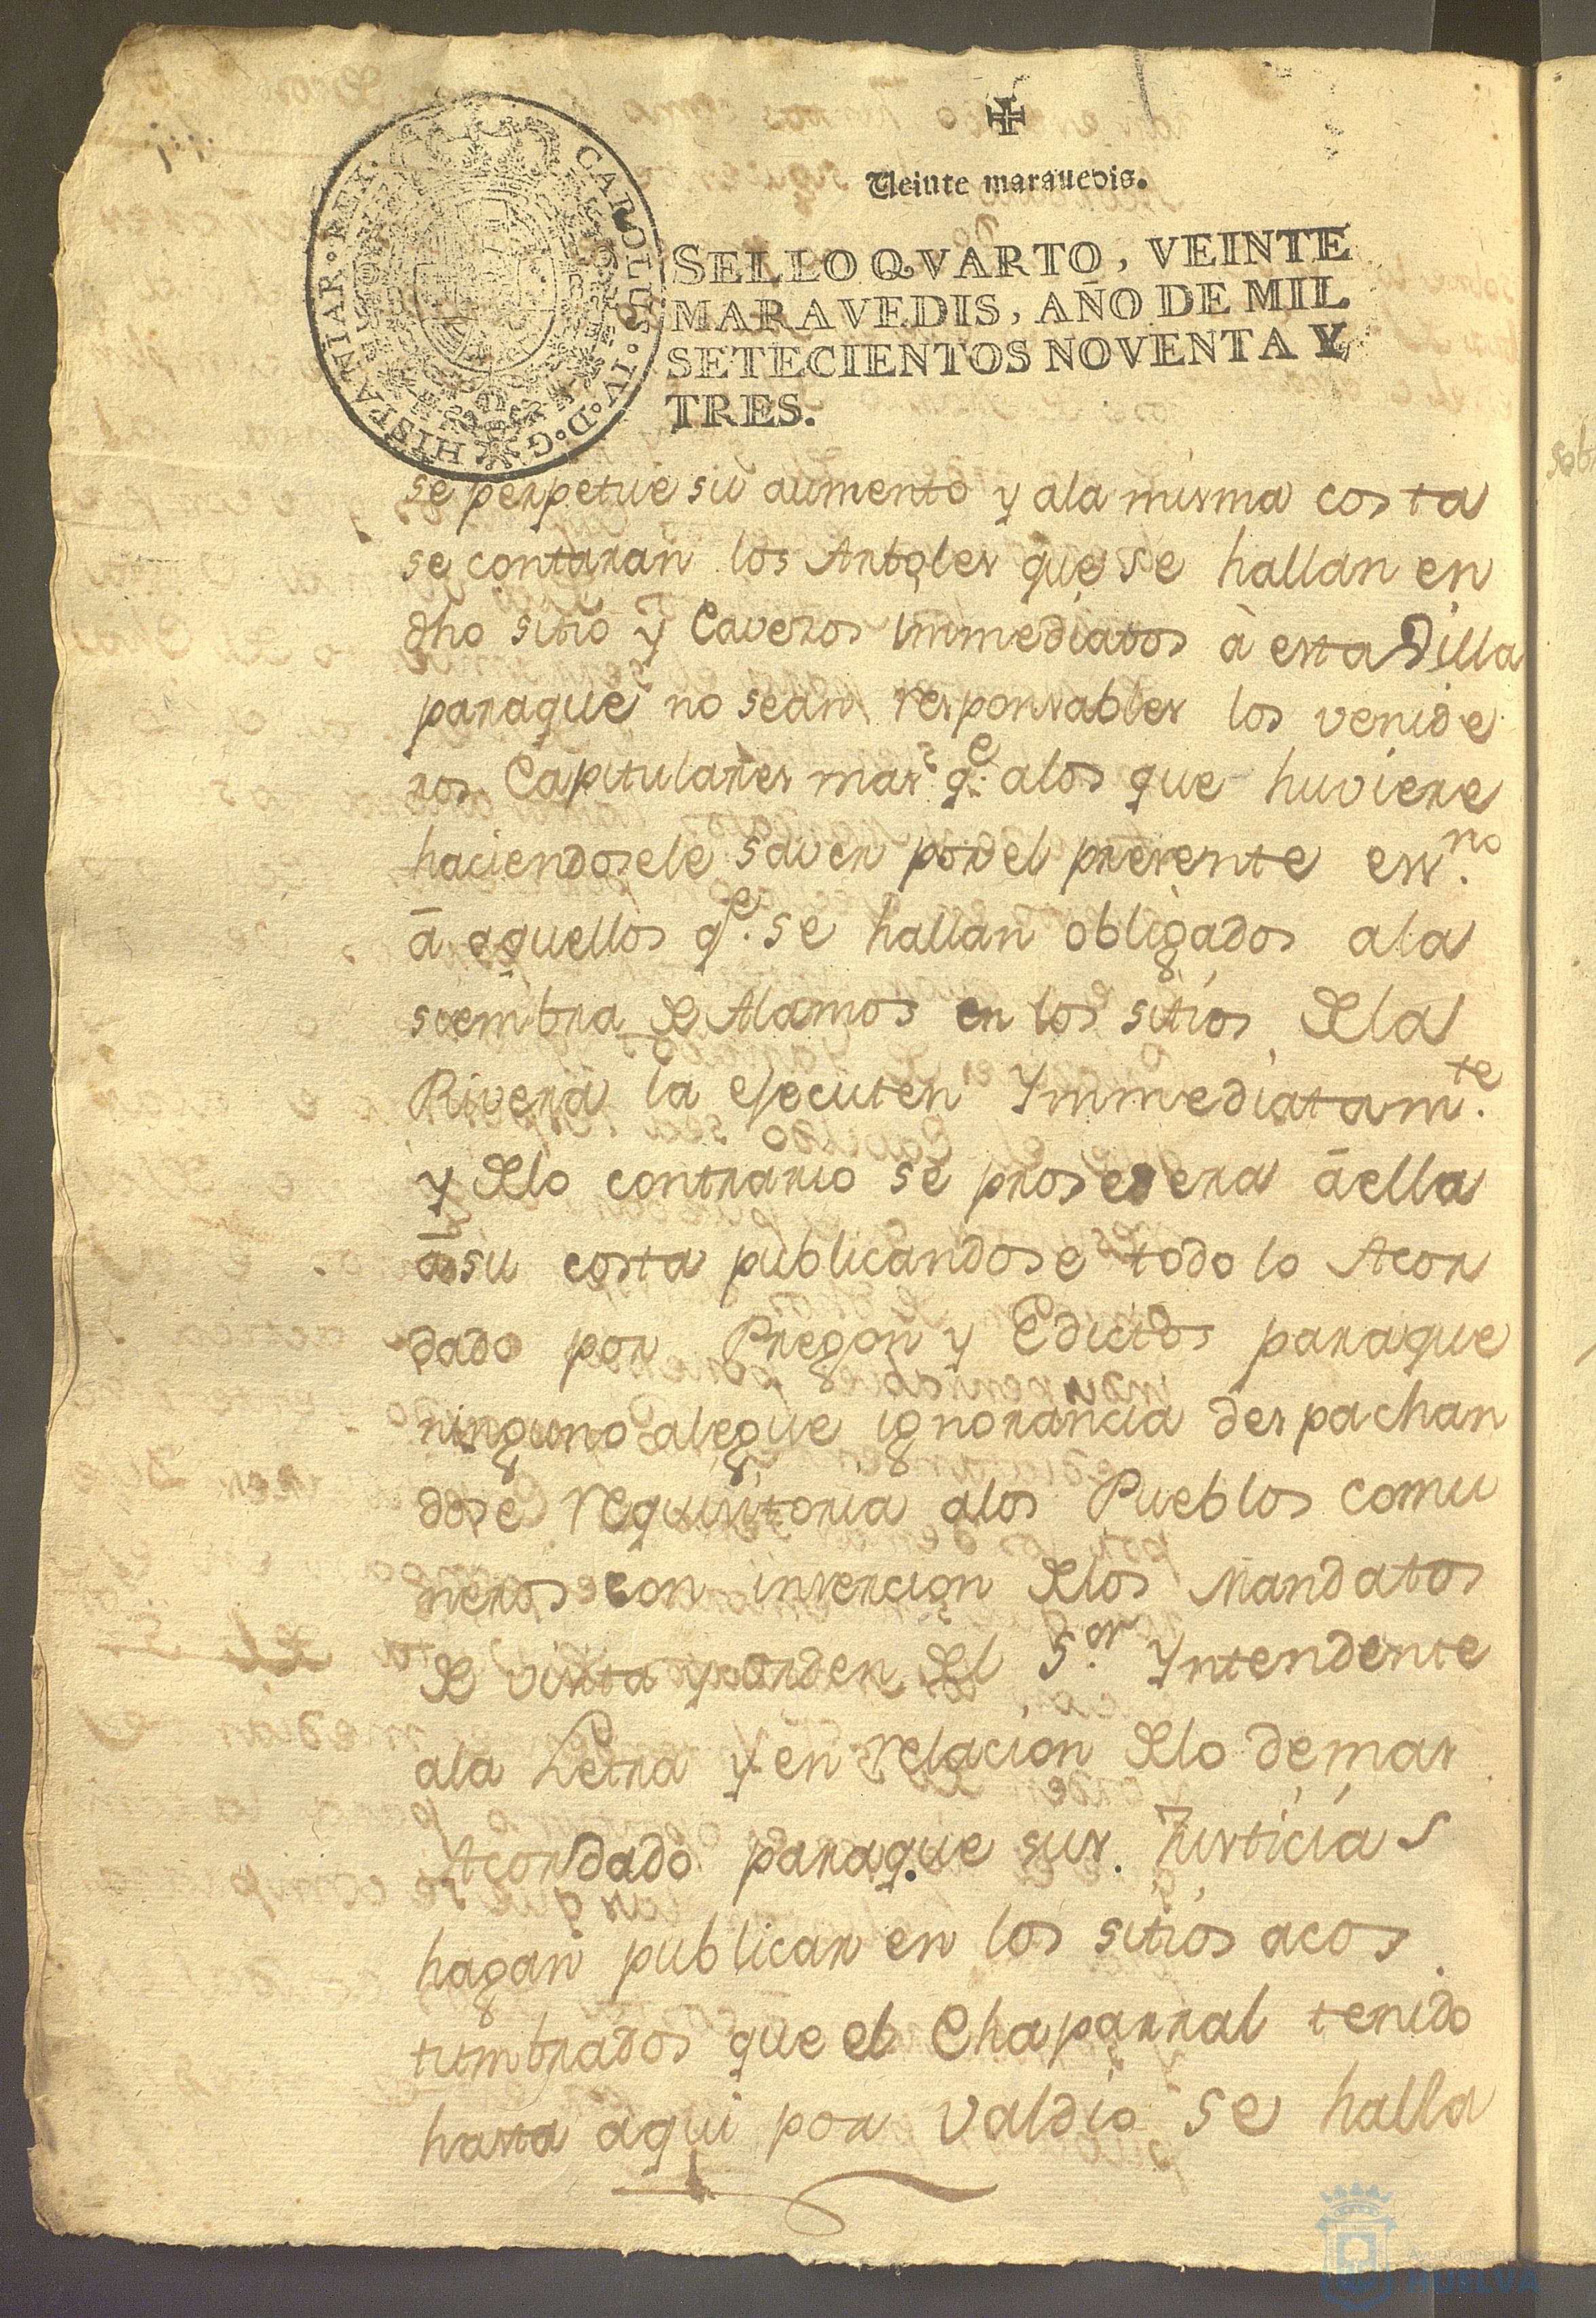 ✠
Veinte maravedis.
CAROLUS · IV · D · G · HISPANIAR · REX ·
SELLO QVARTO, VEINTE
MARAVEDIS, AÑO DE MIL
SETECIENTOS NOVENTA Y
TRES.
se perpetue su aumento y ala misma costa
se contaran los Arboles que se hallan en
dho sitio y Caveros immediatos à esta Villa
paraque no sean responsables los venide
ros Capitulares mas q.e alos que huviere
haciendosele saver por el presente ess.no
ā aquellos q.e se hallan obligados ala
siembra de Alamos en los sitios dela
Rivera la ejecuten Ymmediatam.te
y delo contrario se prosedera āella
ā su costa publicandose todo lo Acor
dado por Pregon y Edictos paraque
ninguno alegue ignorancia despachan
dose requisitoria alos Pueblos comu
neros con insercion delos Mandatos
de visita y orden del S.or Yntendente
ala Letra y en relacion delo demas
Acordado paraque sus Justicias
hagan publicar en los sitios acos
tumbrados que el Chaparral tenido
hasta aqui por valdio se halla
Ayuntamiento
HUELVA